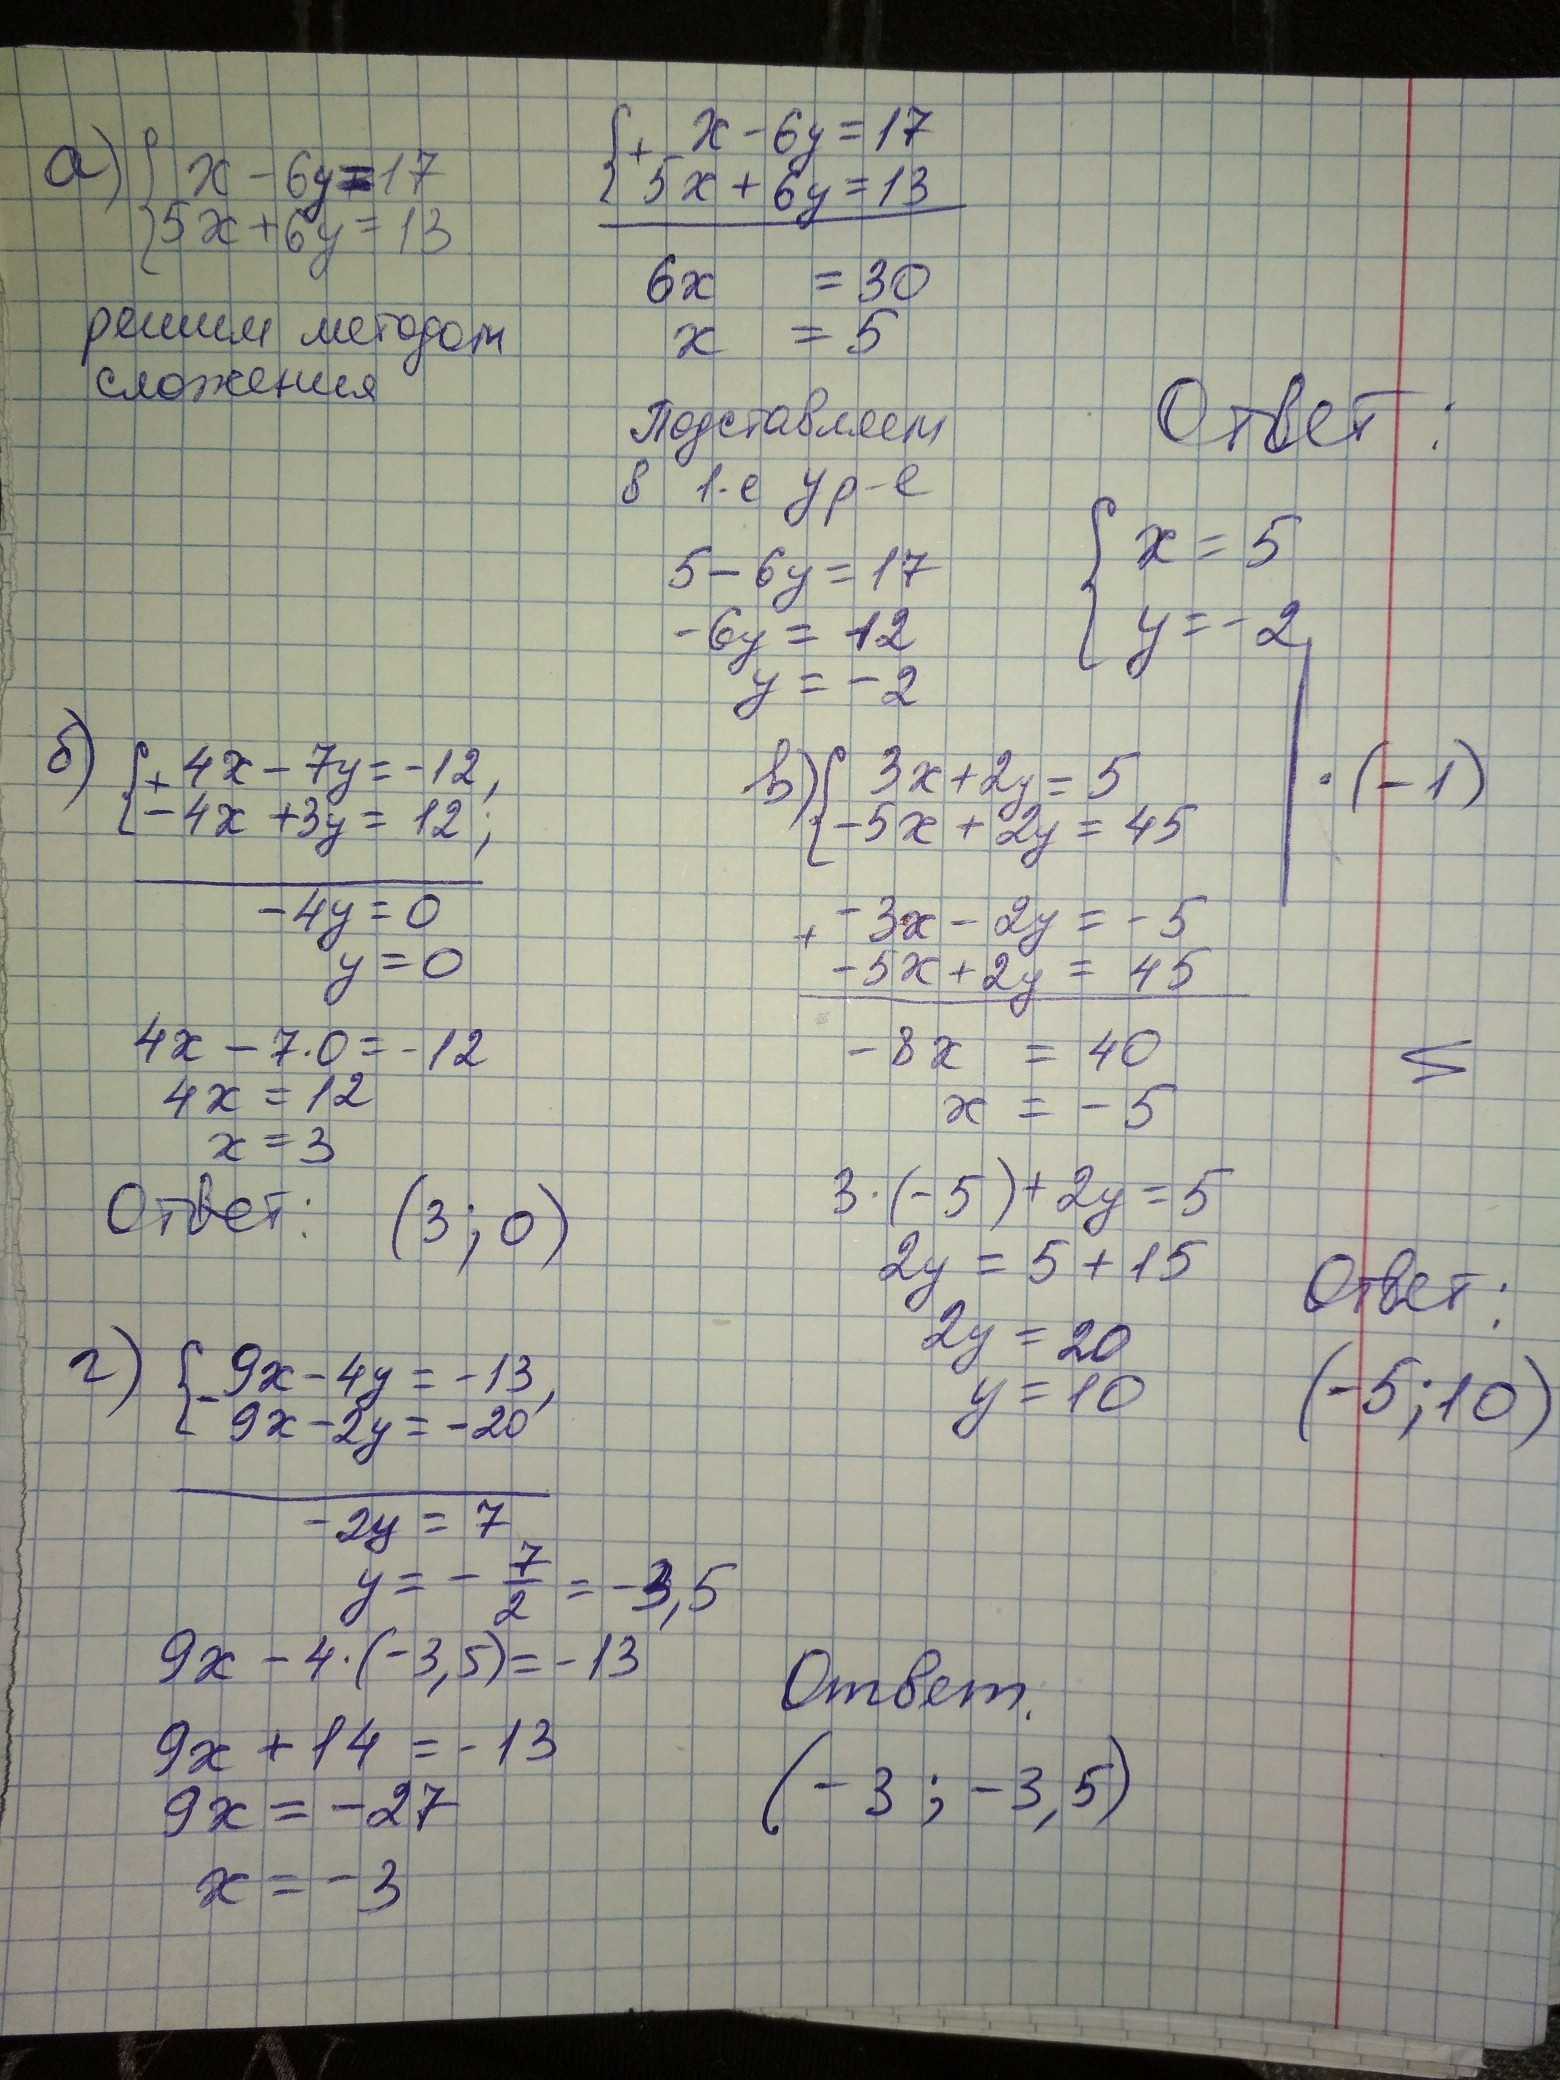 а) { x - 6y = 17
5x + 6y = 13
решим методом
сложения
{ + x - 6y = 17
5x + 6y = 13
6x = 30
x = 5
Подставляем
в 1-е ур-е
5 - 6y = 17
-6y = 12
y = -2
Ответ:
{ x = 5
y = -2
б) { + 4x - 7y = -12,
-4x + 3y = 12;
-4y = 0
y = 0
4x - 7·0 = -12
4x = 12
x = 3
Ответ: (3; 0)
в) { 3x + 2y = 5 | ·(-1)
-5x + 2y = 45
+ -3x - 2y = -5
-5x + 2y = 45
-8x = 40
x = -5
3·(-5) + 2y = 5
2y = 5 + 15
2y = 20
y = 10
Ответ:
(-5; 10)
г) { - 9x - 4y = -13,
9x - 2y = -20
-2y = 7
y = - 7/2 = -3,5
9x - 4·(-3,5) = -13
9x + 14 = -13
9x = -27
x = -3
Ответ.
(-3; -3,5)